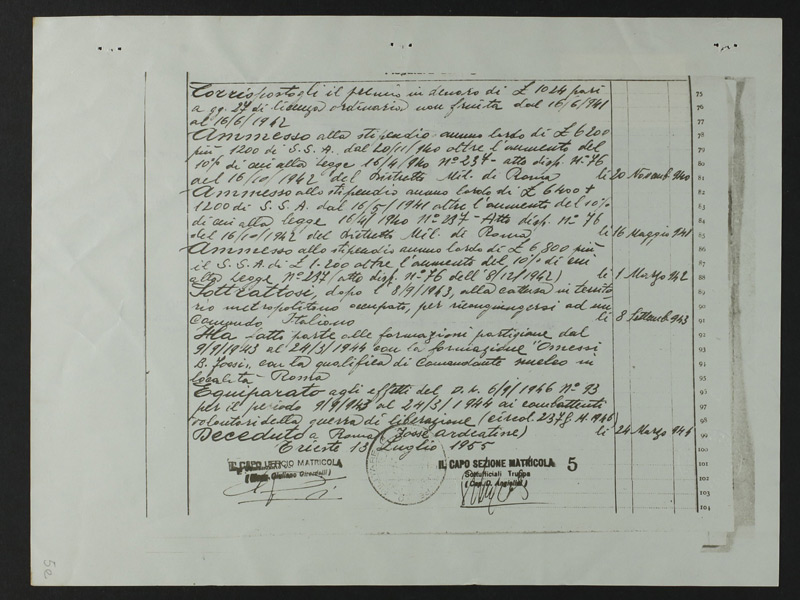 Corrispostogli il premio in denaro di £ 1024 pari 75
a gg. 27 di licenza ordinaria non fruita dal 16/6/941 76
al 16/6/1942 77
Ammesso allo stipendio annuo lordo di £ 6200 78
più 1200 di S.S.A. dal 20/11/940 oltre l'aumento del 79
10% di cui alla legge 16/4/940 N° 237 - atto disp. N° 76 80
del 16/10/1942 del Distretto Mil. di Roma li 20 Novemb. 940 81
Ammesso allo stipendio annuo lordo di £ 6400 +
1200 di S.S.A. dal 16/5/1941 oltre l'aumento del 10% 83
di cui alla legge 16/4/1940 N° 237 - Atto disp. N° 76 84
del 16/10/1942 del Distretto Mil. di Roma, li 16 Maggio 941 85
Ammesso allo stipendio annuo lordo di £ 6,800 più 86
il S.S.A. di £ 1.200 oltre l'aumento del 10% di cui 87
alla legge N° 237 (atto disp. N° 76 dell'8/12/1942) li 1 Marzo 942 88
Sottrattosi, dopo l'8/9/943, alla cattura in territo- 89
rio metropolitano occupato, per ricongiungersi ad un 90
Comando Italiano li 8 Settemb. 943 91
Ha fatto parte alle formazioni partigiane dal 92
9/9/1943 al 24/3/1944 con la formazione 93
con la qualifica di Comandante nucleo in 94
località Roma 95
Equiparato agli effetti del D.L. 6/9/1946 N° 93 96
per il periodo 9/9/943 al 24/3/1944 ai combattenti 97
volontari della guerra di liberazione (circol. 1946) 98
Deceduto a Roma (Fosse Ardeatine) li 24 Marzo 99
Trieste 13 Luglio 1955 100
IL CAPO UFFICIO MATRICOLA
IL CAPO SEZIONE MATRICOLA 5
Sottufficiali Truppa
103
104
5e